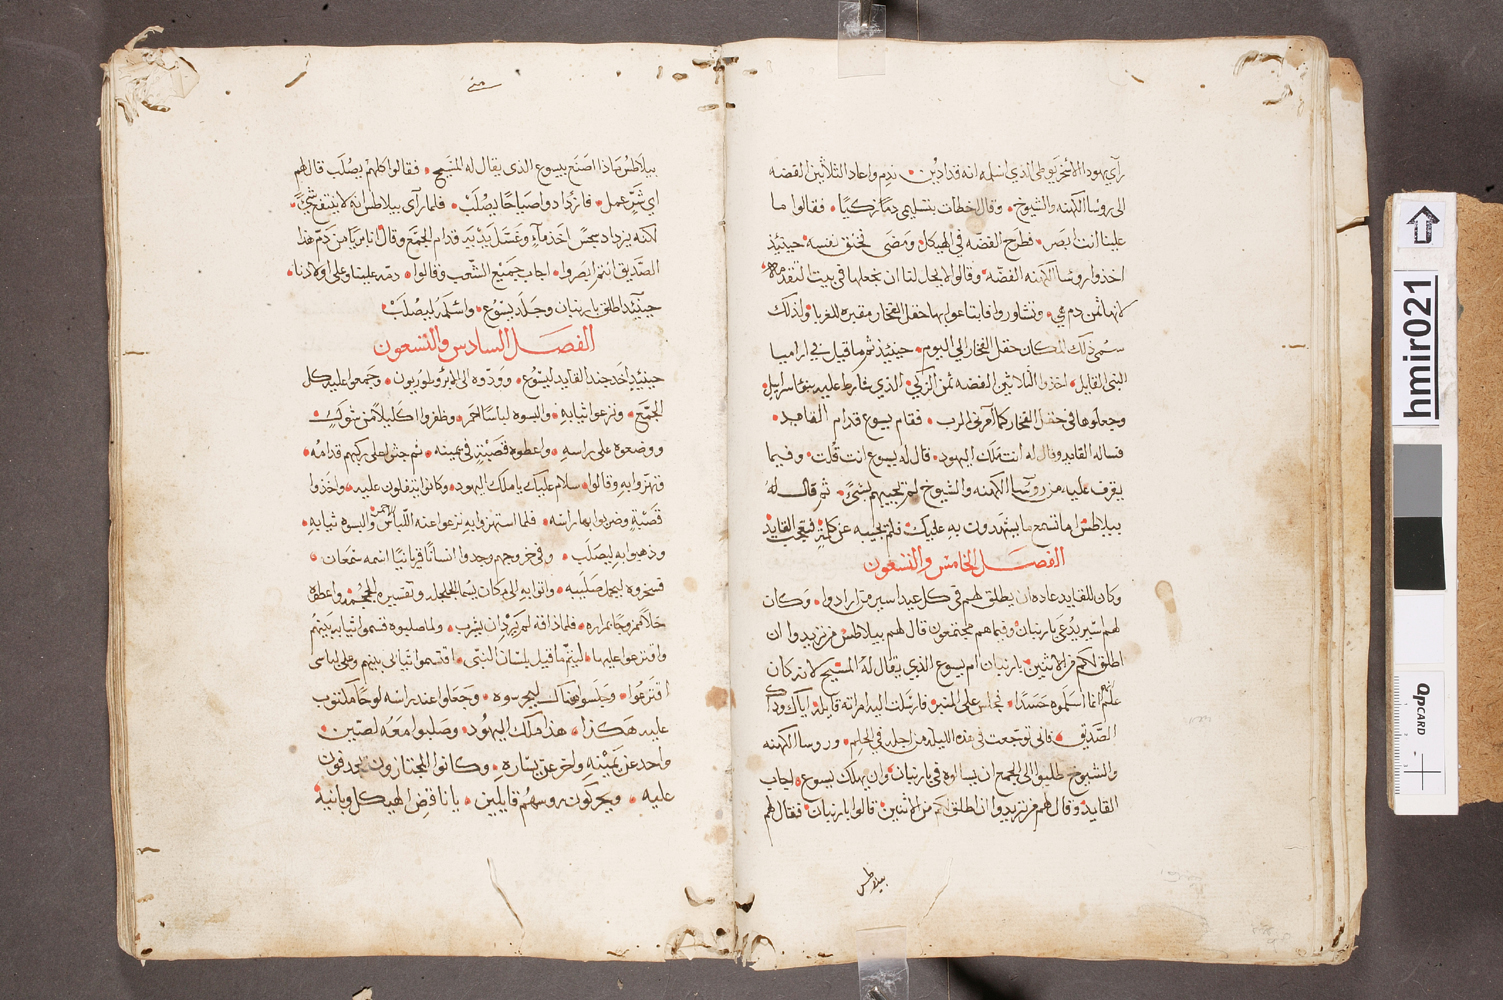 رآي يهودا الاسخريوطي الذي اسلمه انه قد ادين ندم واعاد الثلاثين الفضه
الى روسا الكهنه والشيوخ وقال اخطات بتسليمي دما زكيا فقالوا ما
علينا انت ابصر فطرح الفضه في الهيكل ومضى فخنق نفسه حينيذ
اخذوا روسا الكهنه الفضه وقالوا لا يحل لنا ان نجعلها في بيت التقدمه
لانها ثمن دم هي وتشاوروا فابتاعوا بها حقل الفخار مقبره للغربا ولذلك
سمي ذلك المكان حقل الفخار الي اليوم حينيذ تم ما قيل في ارامیا
النبي القايل اخذوا الثلاثين الفضه ثمن الزكي الذي شارط عليه بنوا اسرايل
وجعلوها في حقل الفخار كما امرني الرب فقام يسوع قدام القايد
فساله القايد وقال له انت ملك اليهود قال له يسوع انت قلت وفيما
يقرف عليه من روسا الكهنه والشيوخ لم يجيبهم بشي ثم قال له
بيلاطس اما تسمع ما يشهدون به عليك فلم يجيبه عن كلمة فتعجب القايد
الفصل الخامس والتسعون
وكان للقايد عاده ان يطلق لهم في كل عيد اسير من ارادوا وكان
لهم اسير يدعى بارنبان وفيما هم مجتمعون قال لهم بيلاطس من تريدوا ان
اطلق لكم من الاثنين بارنبان ام يسوع الذي يقال له المسيح لانه كان
علم انهم انما اسلموه حسدا فجلس على المنبر فارسلت اليه امراته قايله اياك وذاك
الصديق فاني توجعت في هذه الليله من اجله في الحلم وروسا الكهنه
والشيوخ طلبوا الى الجمع ان يسالوه في بارنبان وان يهلك يسوع اجاب
القايد وقال لهم من تريدوا ان اطلق لكم من الاثنين قالوا بارنبان فقال لهم
بيلاطس
بيلاطس ماذا اصنع بيسوع الذي يقال له المسيح فقالوا كلهم يصلب قال لهم
اي شر عمل فازدادوا صياحا يصلب فلما رآى بيلاطس انه لا ينتفع شيء
لكنه يزداد سجس اخذ ماء وغسل يديه قدام الجمع وقال انا بريا من دم هذا
الصديق انتم ابصروا اجاب جميع الشعب وقالوا دمه علينا وعلى اولادنا
حينيذ اطلق بارنبان وجلد يسوع واسلمه ليصلب
الفصل السادس والتسعون
حينيذ اخد جند القايد ليسوع وودوه الى الابروطوريون وجمعوا عليه كل
الجمع ونزعوا ثيابه والبسوه لباسا احمر وظفروا اكليلا من شوك
ووضعوه على راسه واعطوه قصبة في يمينه ثم جثوا على ركبهم قدامه
فتهزوا به وقالوا سلام عليك يا ملك اليهود وكانوا يتفلون عليه واخذوا
قصبة وضربوا بها راسه فلما استهزوا به نزعوا عنه اللباس الاحمر والبسوه ثيابه
وذهبوا به ليصلب وفي خروجهم وجدوا انسانا قريانيا اسمه سمعان
فسخروه ليحمل صليبه واتوا به الى مكان يسما الجلجله وتفسيره الجمجمه واعطوه
خلا ممزوجا بمراره فلما ذاقه لم يرد ان يشرب ولما صلبوه قسموا ثيابه بينهم
واقترعوا عليها ليتم ما قيل بلسان النبي اقتسموا ثيابي بينهم وعلى لباسي
اقترعوا وجلسوا هناك ليحرسوه وجعلوا عند راسه لوحا مكتوب
عليه هكذا هذا ملك اليهود وصلبوا معه لصين
واحد عن يمينه واخر عن يساره وكانوا المجتازون يجدفون
عليه ويحركون روسهم قايلين يا ناقض الهيكل وبانيه
hmir021
QPCARD